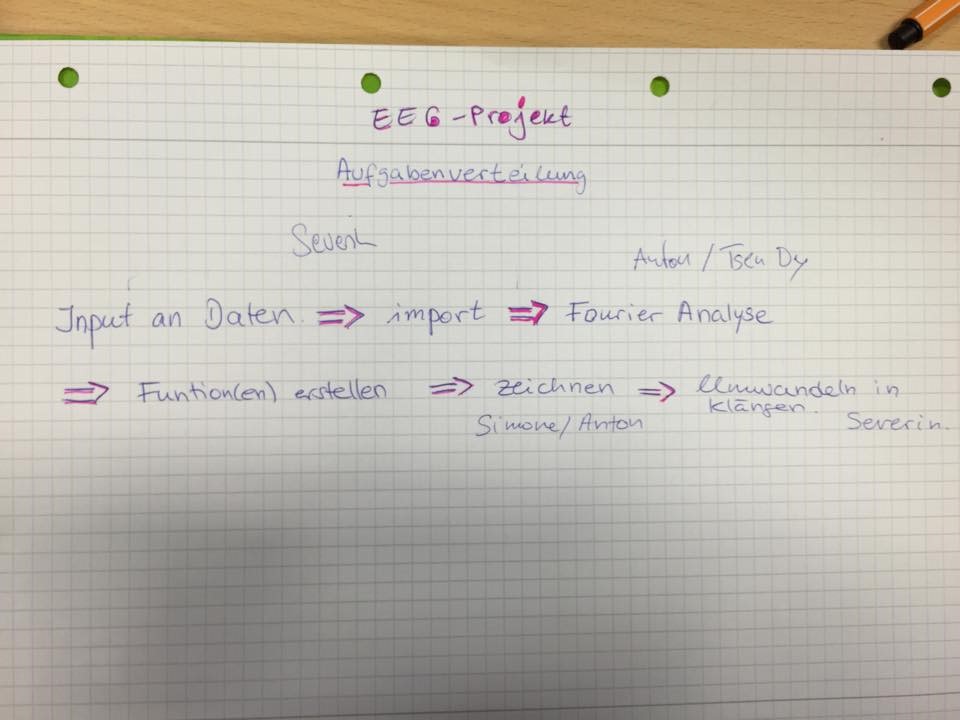 EEG-Projekt
Aufgabenverteilung
Severin
Anton / Tsen Dy
Input an Daten. ⇒ import ⇒ Fourier Analyse
⇒ Funtion(en) erstellen ⇒ zeichnen ⇒ Umwandeln in
klängen.
Simone/Anton Severin.